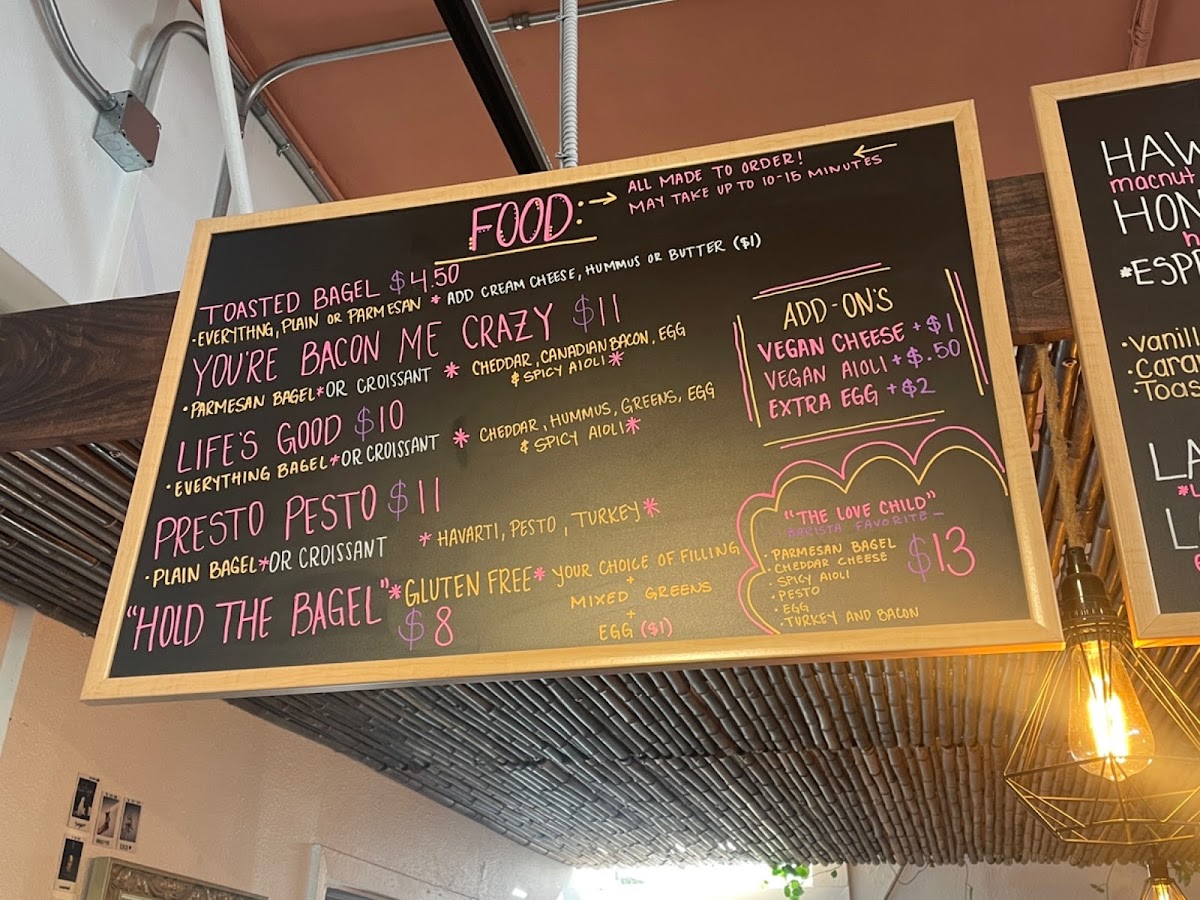 FOOD: → ALL MADE TO ORDER! ←
MAY TAKE UP TO 10-15 MINUTES
TOASTED BAGEL $4.50
·EVERYTHNG, PLAIN OR PARMESAN * ADD CREAM CHEESE, HUMMUS OR BUTTER ($1)
YOU'RE BACON ME CRAZY $11
·PARMESAN BAGEL*OR CROISSANT * CHEDDAR, CANADIAN BACON, EGG
& SPICY AIOLI*
LIFE'S GOOD $10
·EVERYTHING BAGEL*OR CROISSANT * CHEDDAR, HUMMUS, GREENS, EGG
& SPICY AIOLI*
PRESTO PESTO $11
·PLAIN BAGEL*OR CROISSANT * HAVARTI, PESTO, TURKEY*
"HOLD THE BAGEL"*GLUTEN FREE* YOUR CHOICE OF FILLING
$8
+
MIXED GREENS
+
EGG ($1)
ADD-ON'S
VEGAN CHEESE +$1
VEGAN AIOLI +$.50
EXTRA EGG +$2
"THE LOVE CHILD"
BARISTA FAVORITE-
$13
·PARMESAN BAGEL
·CHEDDAR CHEESE
·SPICY AIOLI
·PESTO
·EGG
·TURKEY AND BACON
macnut